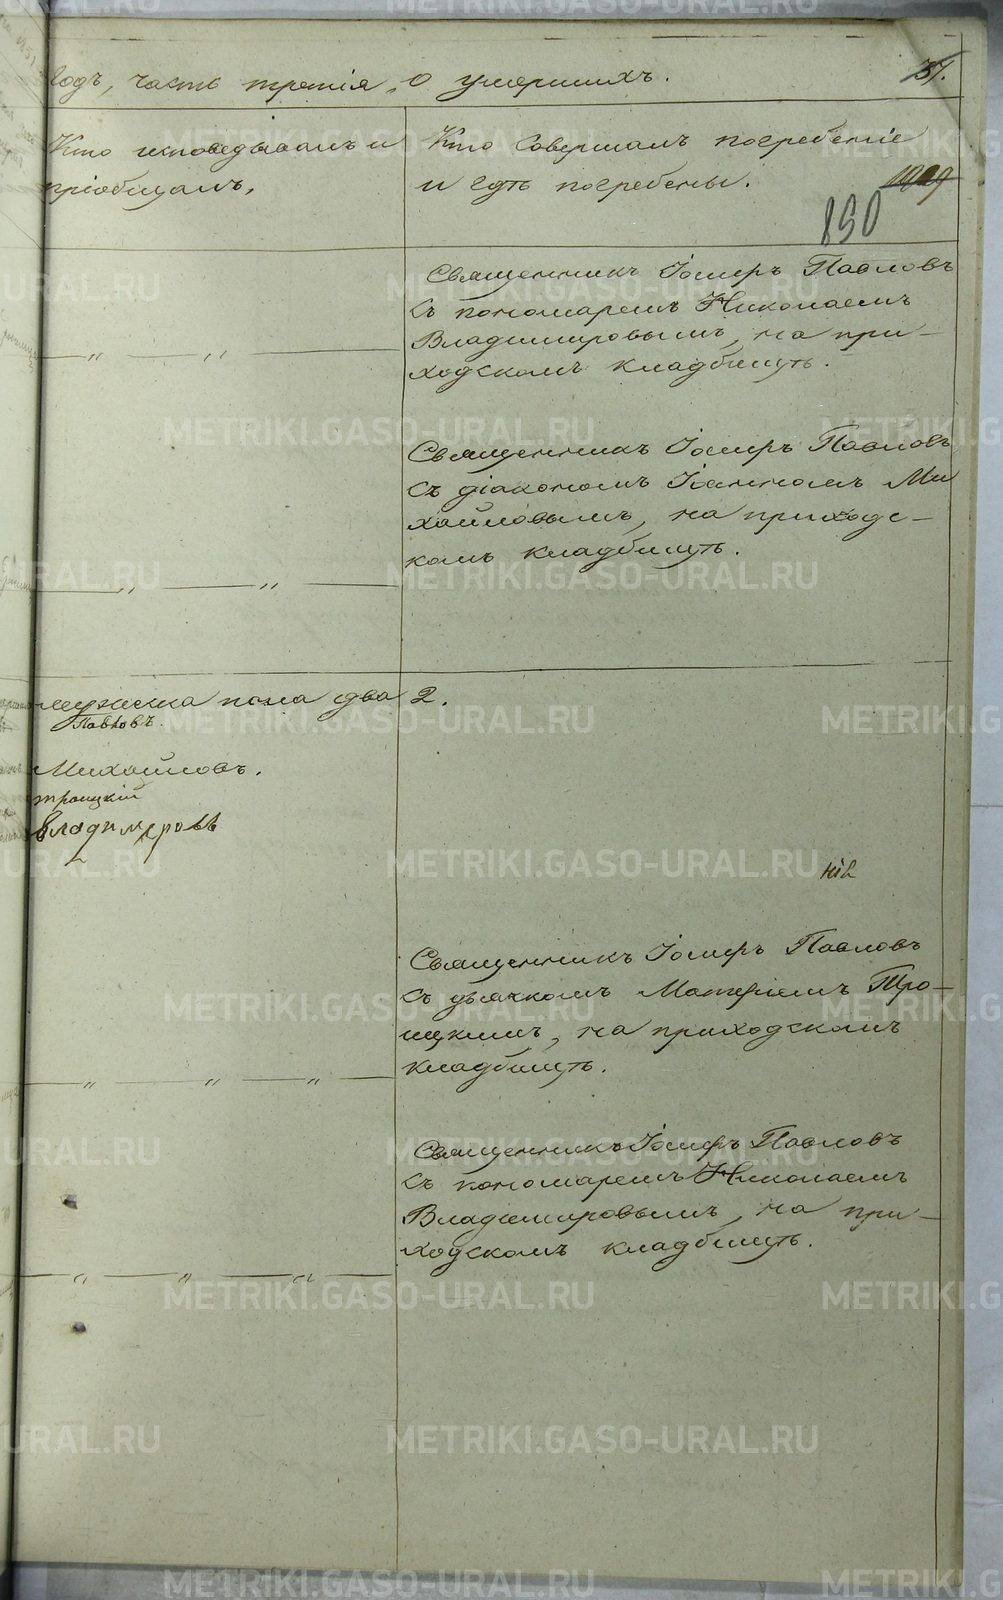 годъ, часть третія, о умершихъ.
37.
Кто исповѣдывалъ и
пріобщалъ.
Кто совершалъ погребеніе
и гдѣ погребены.
890
Священникъ Іосифъ Павловъ
съ пономаремъ Николаемъ
Владимировымъ, на при-
ходскомъ кладбищѣ.
Священникъ Іосифъ Павловъ
съ діакономъ Іоанномъ Ми
хайловымъ, на приходс-
комъ кладбищѣ.
мужеска пола два 2.
Павловъ.
Михайловъ.
Троицкій
Владимеровъ
Священникъ Іосифъ Павловъ
съ дьячкомъ Матвѣемъ Тро-
ицкимъ, на приходскомъ
кладбищѣ.
Священникъ Іосифъ Павловъ
съ пономаремъ Николаемъ
Владимировымъ, на при-
ходскомъ кладбищѣ.
METRIKI.GASO-URAL.RU